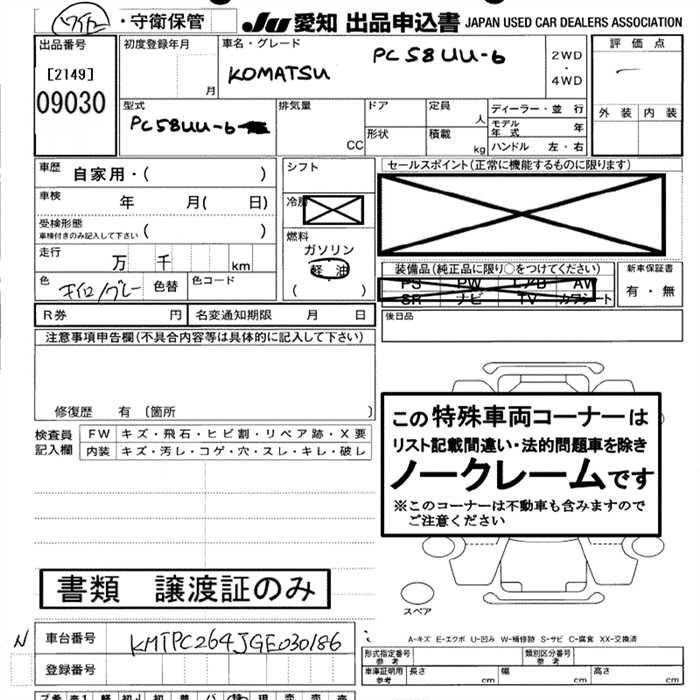 ワイト・守衛保管
JU 愛知 出品申込書 JAPAN USED CAR DEALERS ASSOCIATION
出品番号
[2149]
09030
初度登録年月
月
車名・グレード
KOMATSU
PC58UU-6
2WD
・
4WD
評価点
外装 内装
型式
PC58UU-6
排気量
CC
ドア
形状
定員
人
積載
kg
ディーラー・並行
モデル年式 年
ハンドル 左・右
車歴
自家用・( )
車検
年 月( 日)
受検形態
車検付きのみ記入して下さい ( )
走行
万 千 km
色
キイロ/グレー
色替
色コード
シフト
冷房
燃料
ガソリン
軽油
( )
セールスポイント(正常に機能するものに限ります)
装備品(純正品に限り○をつけてください)
PS PW エアB AW
SR ナビ TV カワシート
新車保証書
有・無
R券 円
名変通知期限 月 日
後日品
注意事項申告欄(不具合内容等は具体的に記入して下さい)
修復歴 有 〔箇所 〕
検査員
記入欄
FW キズ・飛石・ヒビ割・リペア跡・X要
内装 キズ・汚レ・コゲ・穴・スレ・キレ・破レ
この特殊車両コーナーは
リスト記載間違い・法的問題車を除き
ノークレームです
※このコーナーは不動車も含みますので
ご注意ください
スペア
書類 譲渡証のみ
A-キズ E-エクボ U-凹み W-補修跡 S-サビ C-腐食 XX-交換済
N
車台番号
KMTPC264JGE030186
登録番号
形式指定番号
参考
類別区分番号
参考
車庫証明用
参考
長さ cm
幅 cm
高さ cm